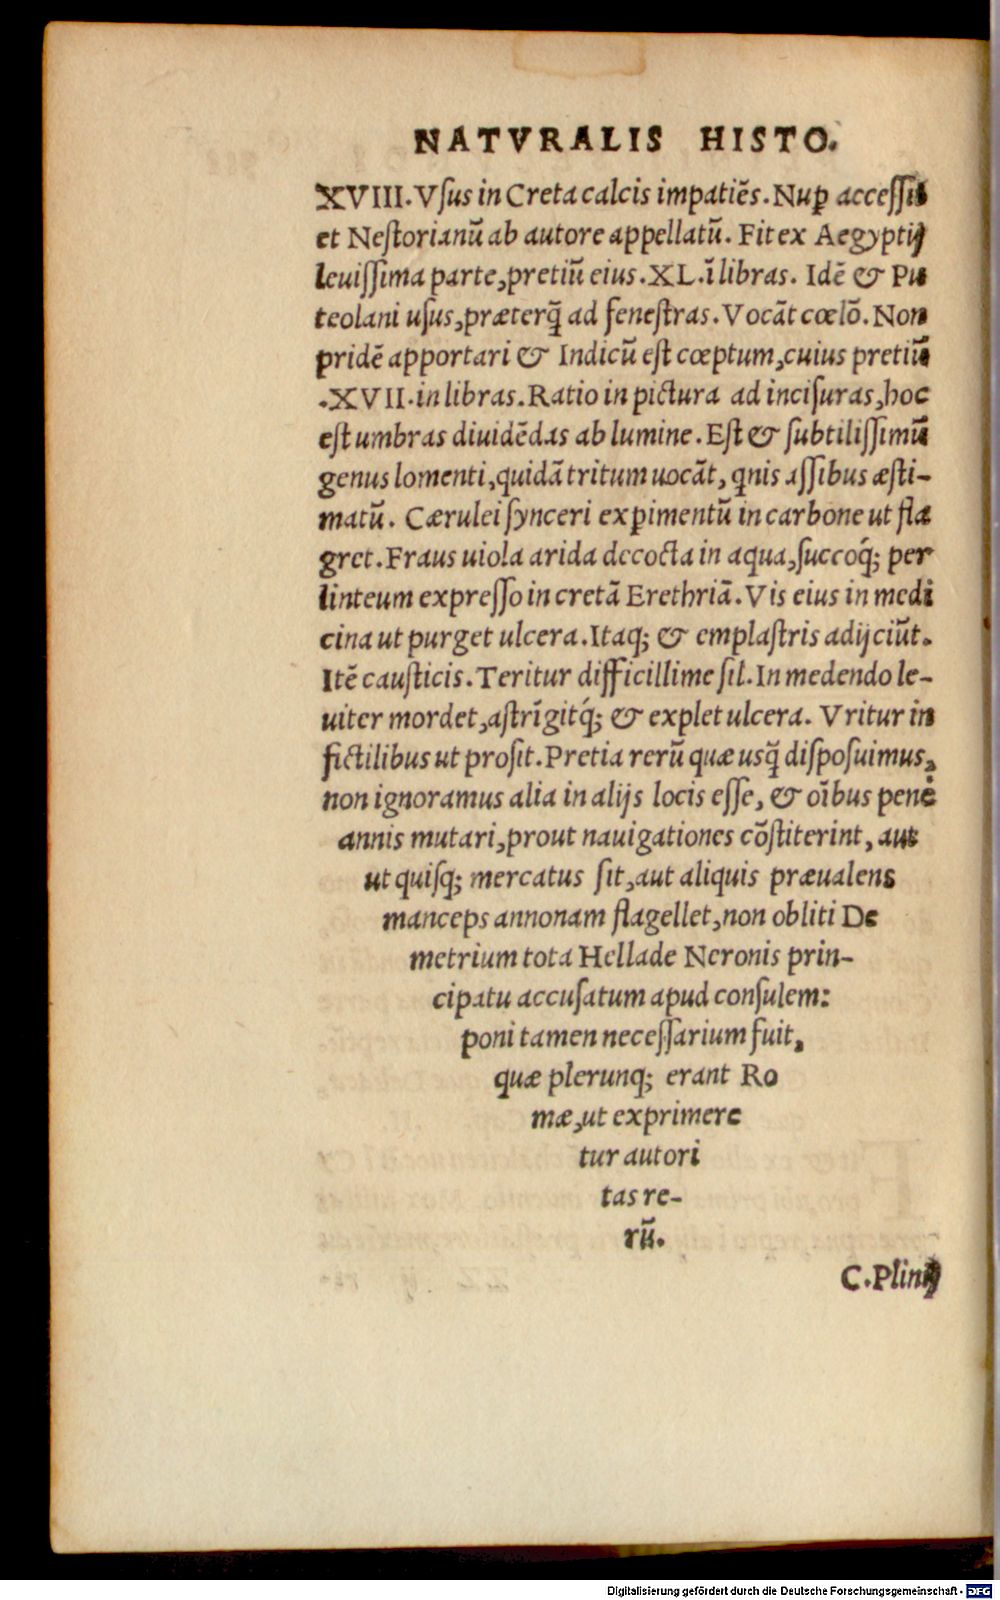 NATVRALIS HISTO.
XVIII. Vſus in Creta calcis impatiẽs. Nuꝑ acceſſit
et Neſtorianũ ab autore appellatũ. Fit ex Aegyptij
leuiſſima parte, pretiũ eius .XL. ĩ libras. Idẽ & Pu
teolani uſus, præterq̃ ad feneſtras. Vocãt cœlõ. Non
pridẽ apportari & Indicũ eſt cœptum, cuius pretiũ
.XVII. in libras. Ratio in pictura ad inciſuras, hoc
eſt umbras diuidẽdas ab lumine. Eſt & ſubtiliſſimũ
genus lomenti, quidã tritum uocãt, qnis aſſibus æſti-
matũ. Cærulei ſynceri exꝑimentũ in carbone ut fla
gret. Fraus uiola arida decocta in aqua, ſuccoq́; per
linteum expreſſo in cretã Erethriã. Vis eius in medi
cina ut purget ulcera. Itaq; & emplaſtris adijciũt.
Itẽ cauſticis. Teritur difficillime ſil. In medendo le-
uiter mordet, aſtrĩgitq́; & explet ulcera. Vritur in
fictilibus ut proſit. Pretia rerũ quæ uſq̃ diſpoſuimus,
non ignoramus alia in alijs locis eſſe, & oĩbus penè
annis mutari, prout nauigationes cõſtiterint, aut
ut quiſq; mercatus ſit, aut aliquis præualens
manceps annonam flagellet, non obliti De
metrium tota Hellade Neronis prin-
cipatu accuſatum apud conſulem:
poni tamen neceſſarium fuit,
quæ plerunq; erant Ro
mæ, ut exprimere
tur autori
tas re-
rũ.
C. Plinij
Digitalisierung gefördert durch die Deutsche Forschungsgemeinschaft - DFG